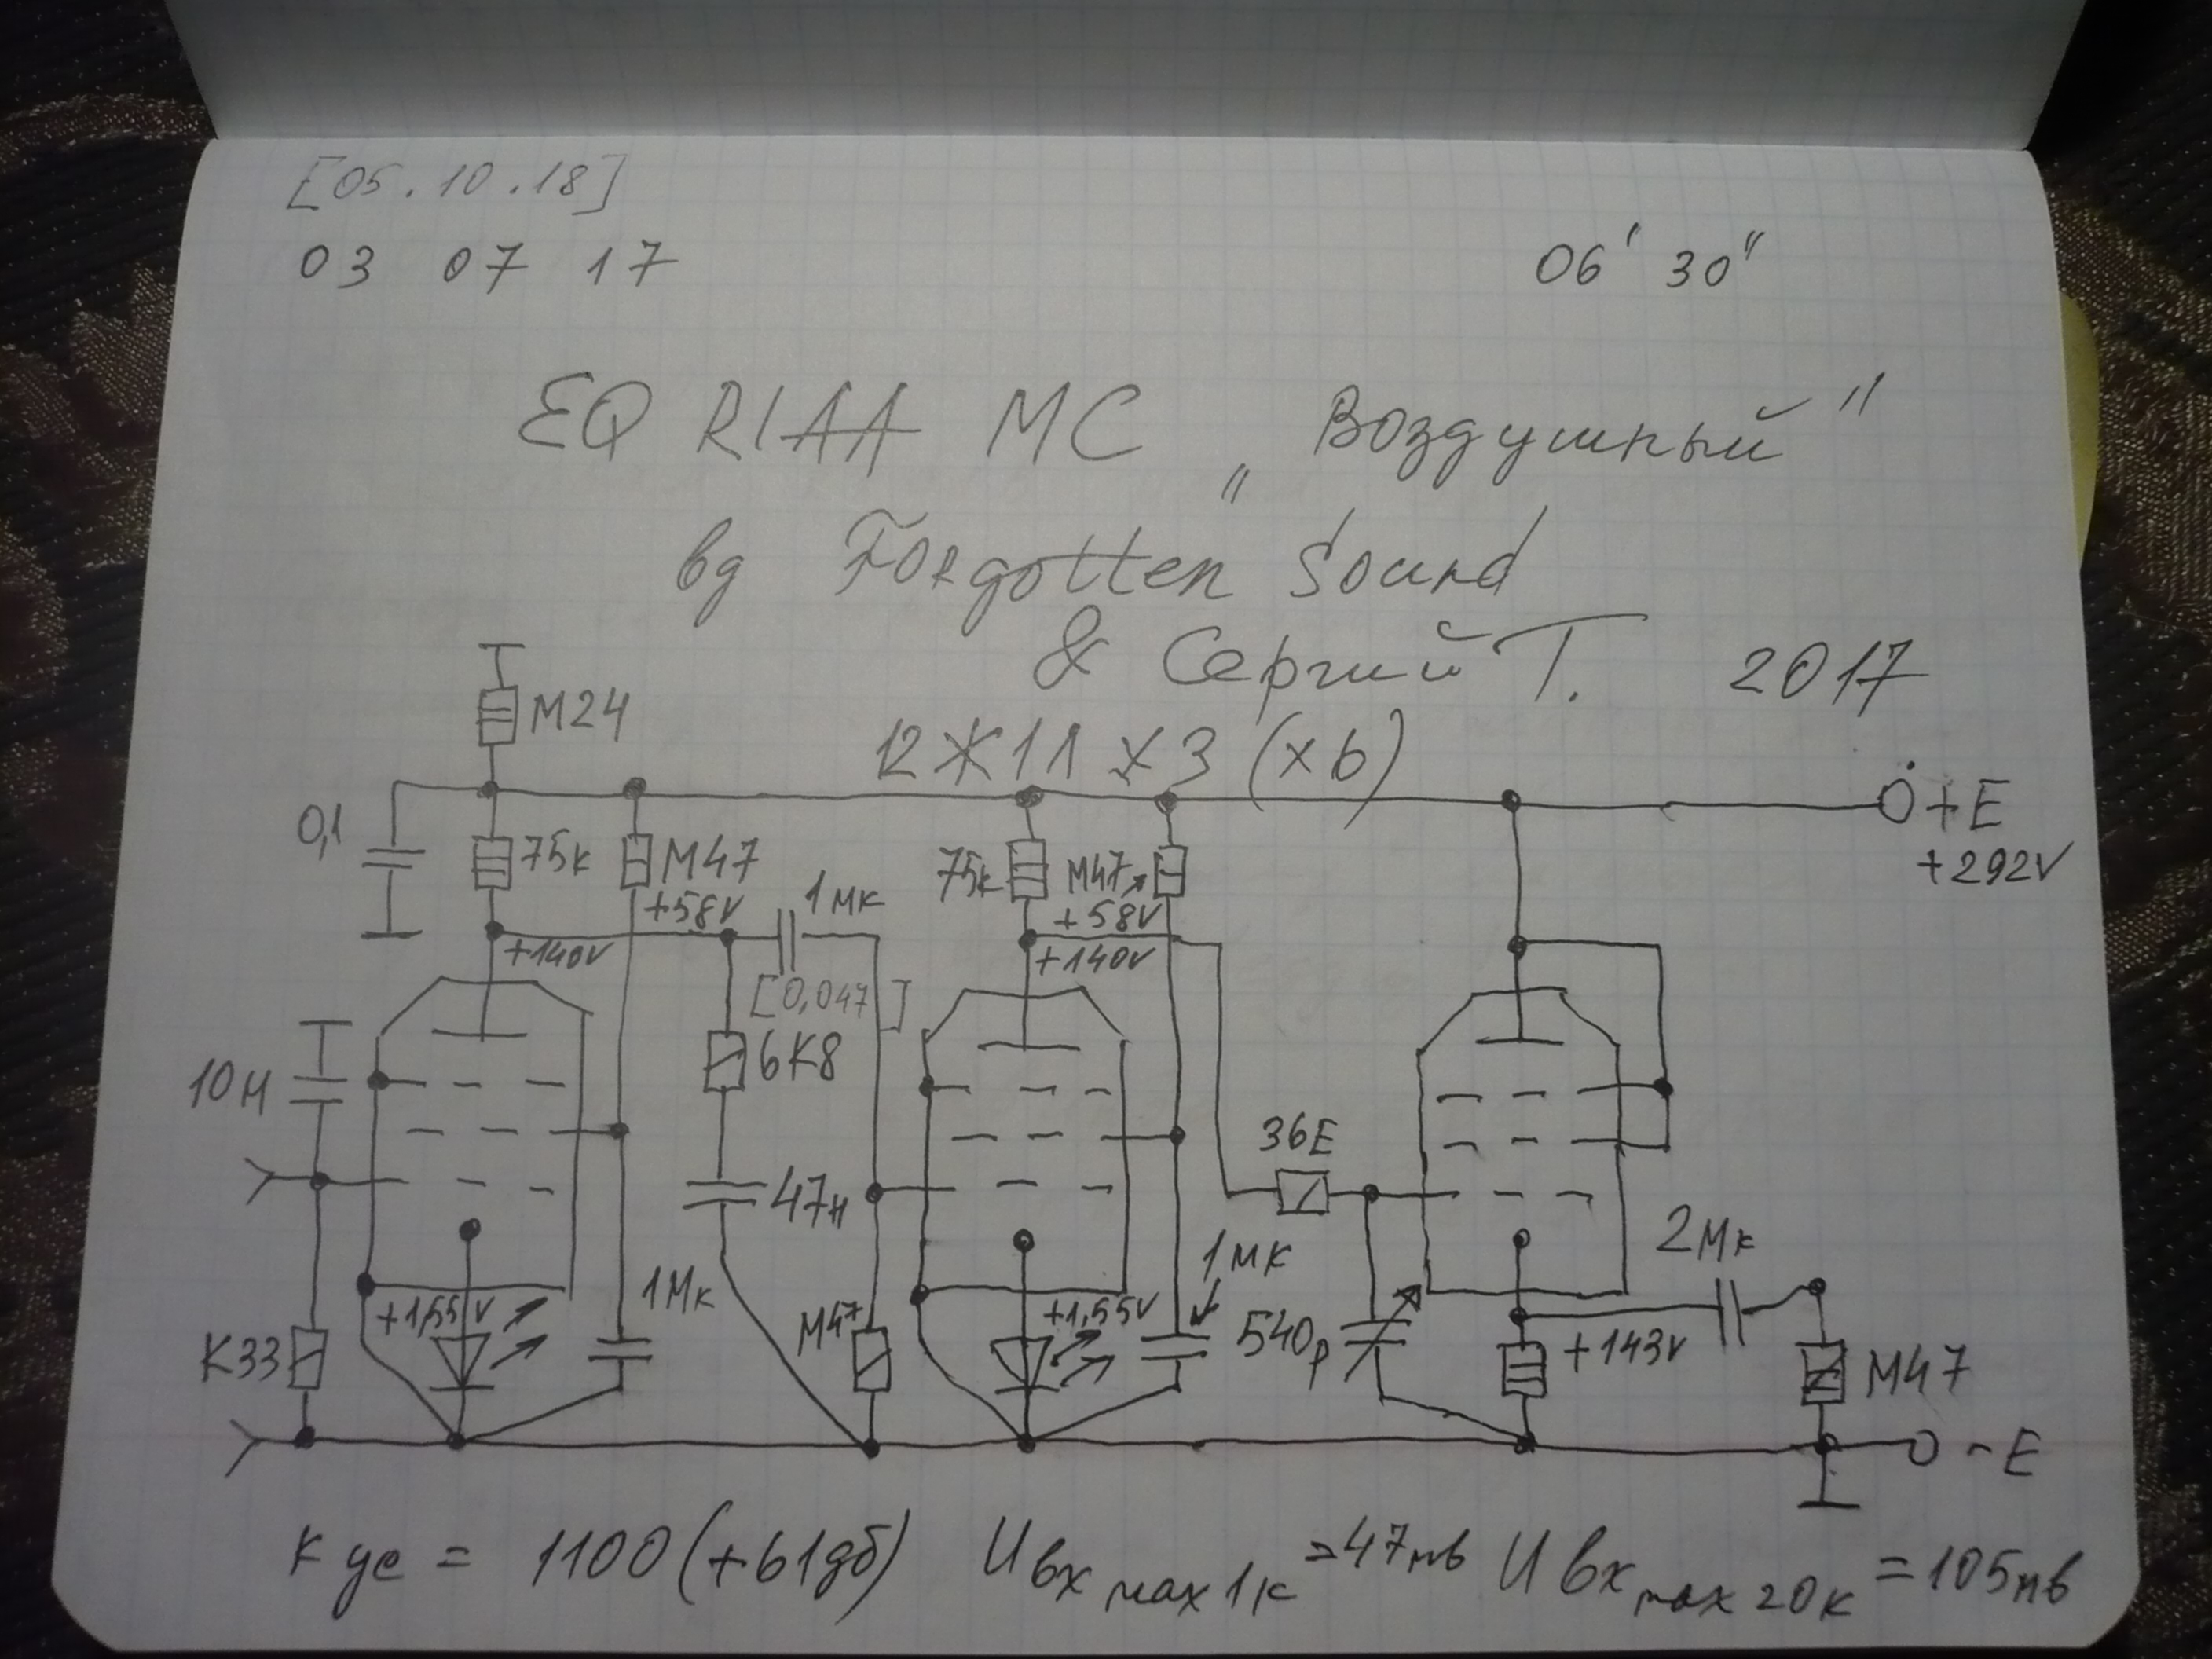 [05.10.18]
03 07 17
06' 30"
EQ RIAA MC „Воздушный"
by Forgotten Sound
& Сергий Т. 2017
М24
12Ж1Л х3 (х6)
+E
+292V
0,1
75к
М47
+58V
1мк
75к
М47
+58V
+140V
[0,047]
+140V
10н
6К8
36Е
47н
2Мк
1Мк
1мк
К33
+1,55V
М47
+1,55V
540р
+143V
М47
-E
Кус = 1100 (+61дб) Uвх max 1к =47мв Uвх max 20к = 105мв